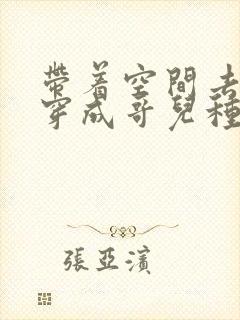 帶着空間去
穿成哥兒種
張亞濱